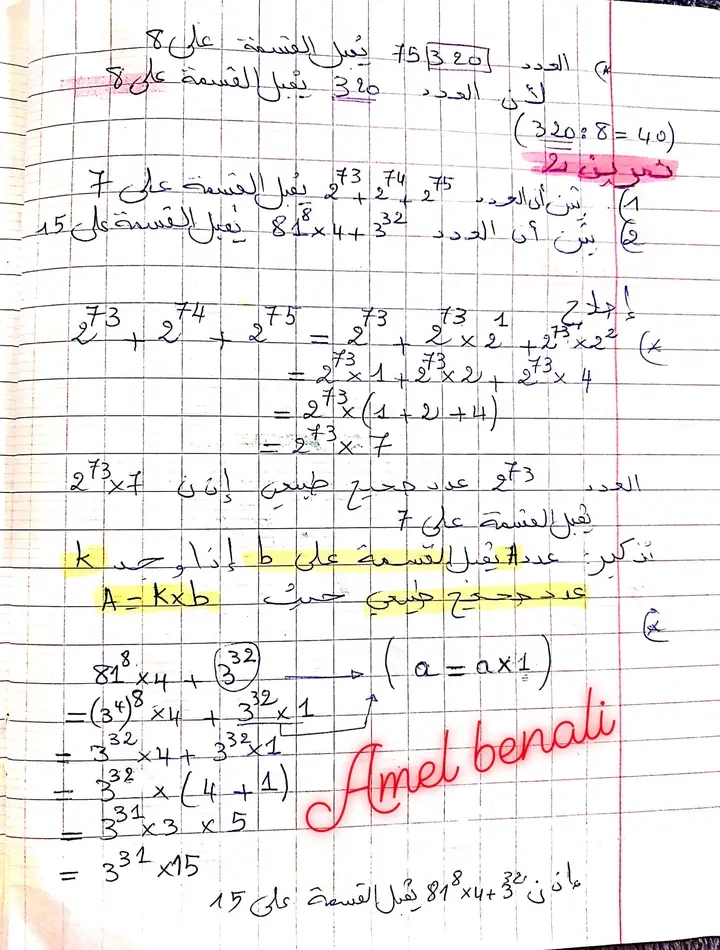 *) العدد 75320 يقبل القسمة على 8
لأن العدد 320 يقبل القسمة على 8
(320 : 8 = 40)
تمرين 2
1) بيّن أن العدد 2^73 + 2^74 + 2^75 يقبل القسمة على 7
2) بيّن أن العدد 81^8 × 4 + 3^32 يقبل القسمة على 15
إصلاح
*) 2^73 + 2^74 + 2^75 = 2^73 + 2^73 × 2^1 + 2^73 × 2^2
= 2^73 × 1 + 2^73 × 2 + 2^73 × 4
= 2^73 × (1 + 2 + 4)
= 2^73 × 7
العدد 2^73 عدد صحيح طبيعي إذن 2^73 × 7
يقبل القسمة على 7
تذكير: عدد A يقبل القسمة على b إذا وجد k
عدد صحيح طبيعي حيث A = k × b
*)
81^8 × 4 + 3^32 → (a = a × 1)
= (3^4)^8 × 4 + 3^32 × 1
= 3^32 × 4 + 3^32 × 1
= 3^32 × (4 + 1)
= 3^31 × 3 × 5
= 3^31 × 15
Amel benali
إذن 81^8 × 4 + 3^32 يقبل القسمة على 15